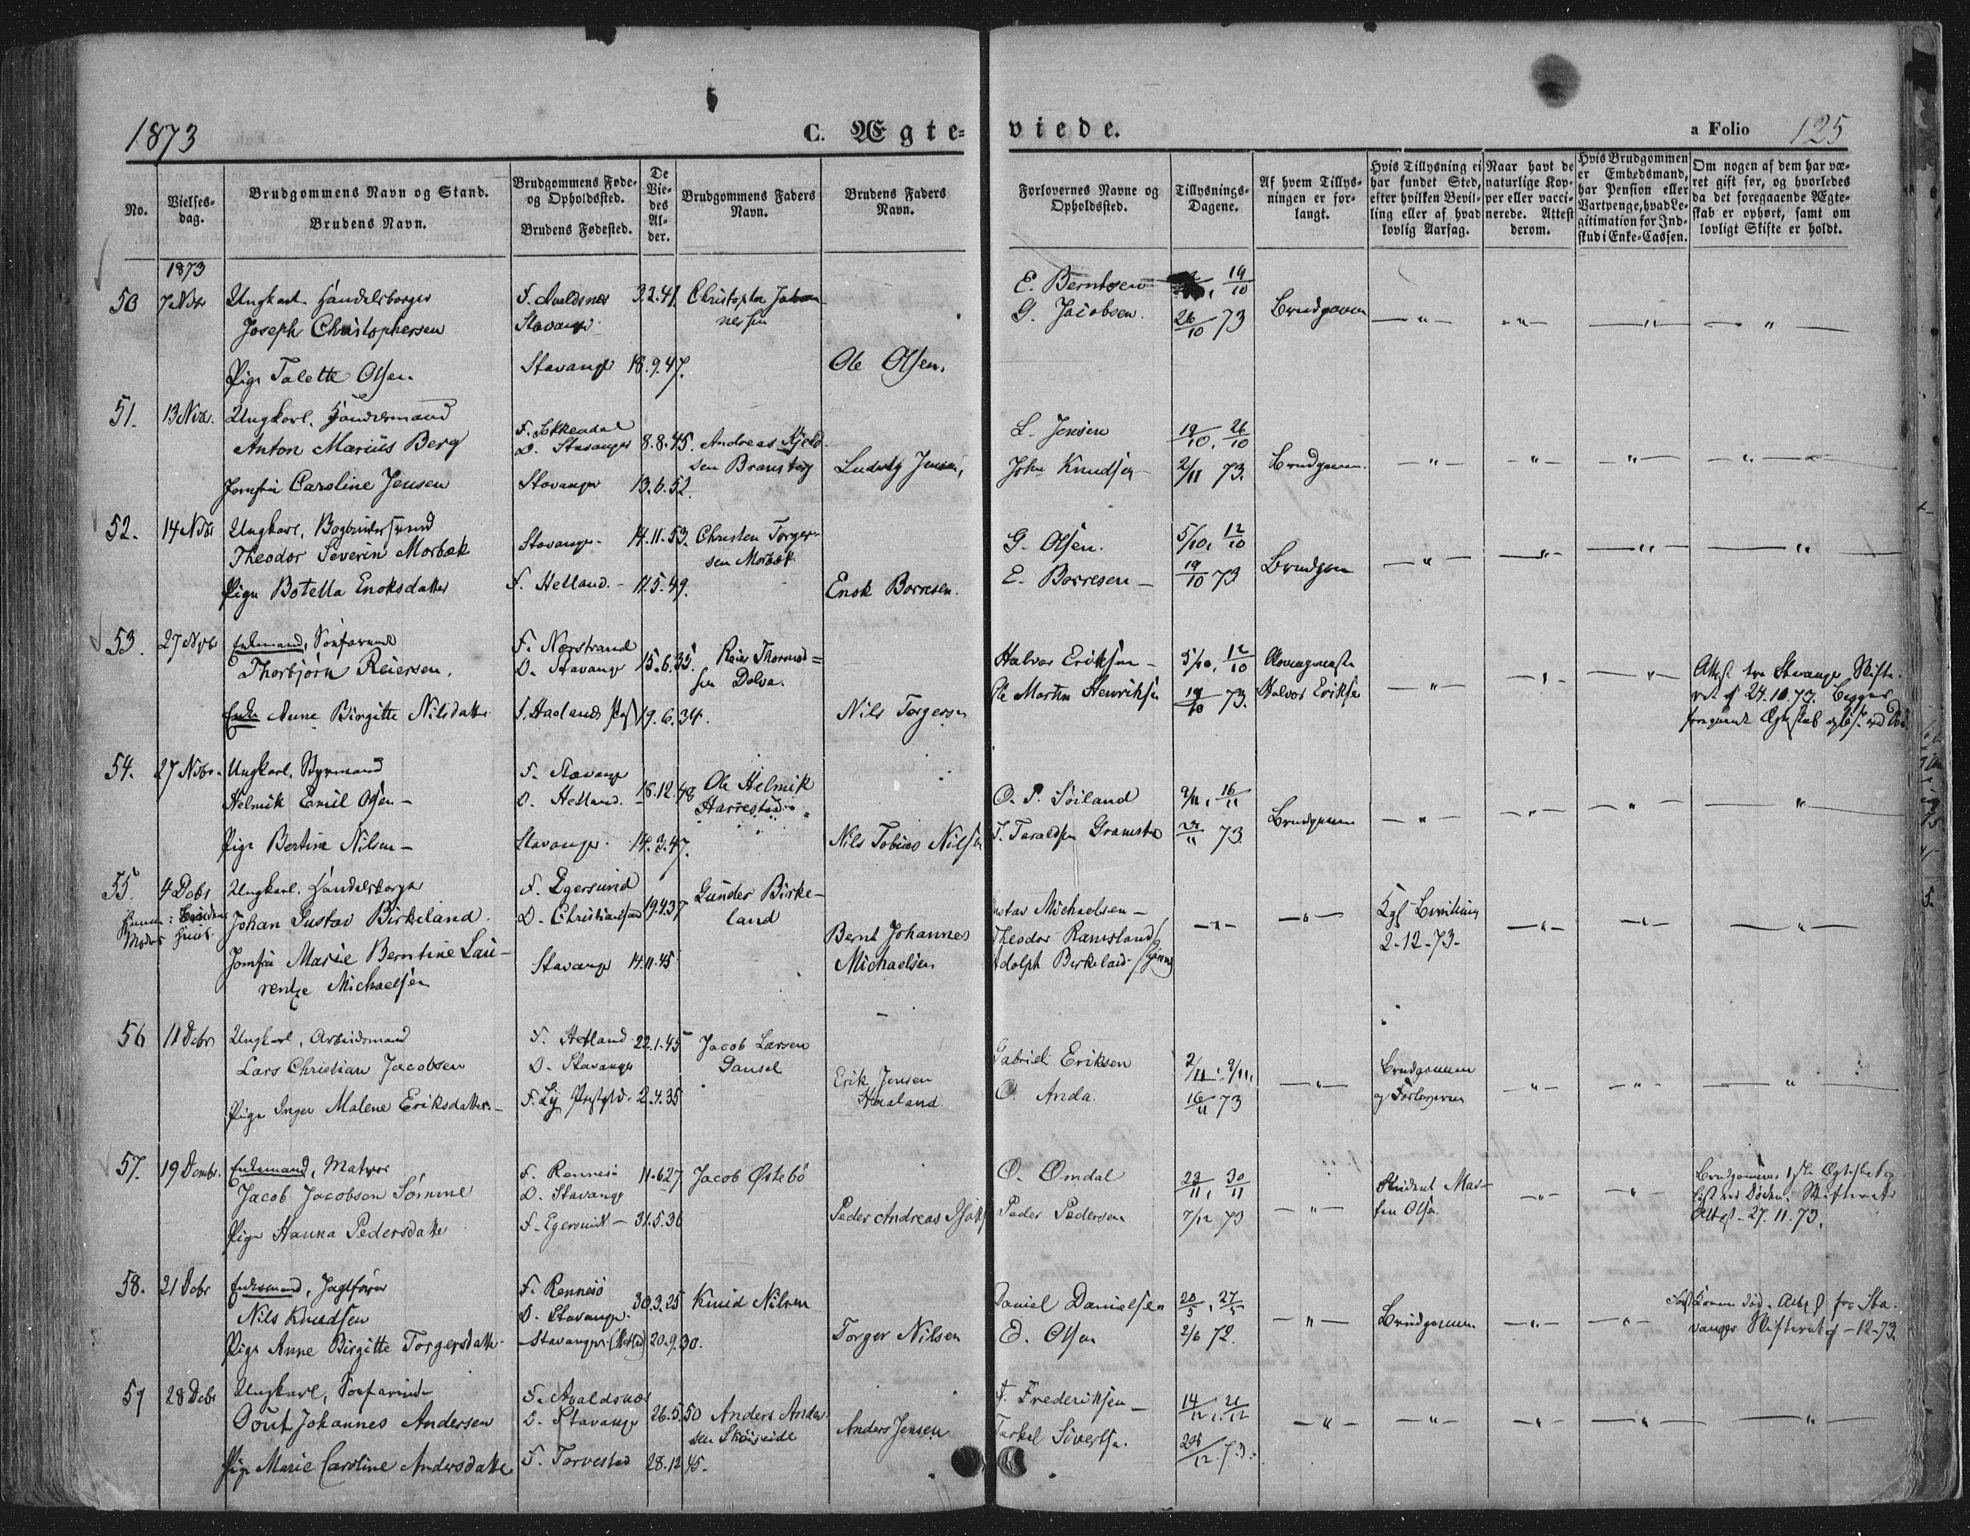 1873
C. Ægte-
viede.
a Folio 125
No.
Vielses-
dag.
Brudgommens Navn og Stand.
Brudens Navn.
Brudgommens Føde-
og Opholdssted.
Brudens Fødested.
De
Vie-
des
Al-
der.
Brudgommens Faders
Navn.
Brudens Faders
Navn.
Forlovernes Navne og
Opholdssted.
Tillysnings-
Dagene.
Af hvem Tillys-
ningen er for-
langt.
Hvis Tillysning ei
har fundet Sted,
efter hvilken Bevil-
ling eller af hvad
lovlig Aarsag.
Naar havt de
naturlige Kop-
per eller vacci-
nerede. Attest
derom.
Hvis Brudgommen
er Embedsmand,
har Pension eller
Vartpenge, hvad Le-
gitimation for Ind-
skud i Enke-Cassen.
Om nogen af dem har væ-
ret gift før, og hvorledes
da det foregaaende Ægte-
skab er ophørt, samt om
lovligt Skifte er holdt.
1873
50 7 Nbr Ungkarl. Handelsborger F. Avaldsnes 3.2.41. Christopher Johan- E. Berntsen 19/10
Joseph Christophersen Stavanger nessen G. Jacobsen. 26/10 73 Brudgommen — " — — " — — " — — " —
Pige Talette Olsen. Stavanger 18.9.47. Ole Olsen.
51. 13 Nbr. Ungkarl. Handelsmand F. Sokkendal L. Jensen 19/10, 26/10
Anton Marius Berg D. Stavanger 8.8.45. Andreas
Ludwig Jensen, John Knudsen 2/11 73. Brudgommen — " — — " — — " — — " —
Jomfru Caroline Jensen Stavanger 13.6.52.
52. 14 Nbr Ungkarl, Bogbindersvend Stavanger 14.11.53. Christen Torger- G. Olsen. 5/10, 12/10
Theodor Severin Morbæk sen Morbæk Brudgom — " — — " — — " — — " —
Pige Botella Enoksdatter F. Hetland. 11.5.49. Enok Børresen. E. Børresen 19/10 73
53. 27 Nbr Enkemand, Søfarende F. Nerstrand 15.6.35. Reier Halvor Eriksen 5/10, 12/10
Thorbjørn Reiersen. D. Stavanger sen Dalva. Ole Martin Henriksen 19/10 73. Halvor Eriksen — " — — " — — " — Attest fra Stavanger Skifte-
ret af 24.10.73. Begges
Enke Anne Birgitte Nilsdatter F. Haalands 19.6.34. Nils Torgersen Ægteskab opløst ved Død.
54. 27 Nbr. Ungkarl, Styrmand F. Stavanger 18.12.48 Ole Helmik O. P. Søiland 9/11, 16/11
Helmik Emil Olsen D. Hetland. Harrestad. Brudgommen — " — — " — — " — — " —
Pige Bertine Nilsen Stavanger. 14.3.47. Nils Tobias Nilsen T. Taraldsen Gramstad 23/11 73.
55. 4 Dcbr Ungkarl. Handelsborger F. Egersund 19.4.37 Gunder Birke- Gustav Michaelsen — " — — " — Kgl Bevilling
Brudens Johan Gustav Birkeland. D. Christiansand land Theodor Ramsland 2-12-73- — " — — " — — " —
Moders Huus Bernt Johannes Adolph Birkeland
Jomfru Marie Berntine Lau- Stavanger 14.11.45 Michaelsen
rentze Michaelsen
56 11 Dcbr Ungkarl, Arbeidsmand F. Hetland 22.1.45 Jacob Larsen Gabriel Eriksen 2/11, 9/11,
Lars Christian Jacobsen D. Stavanger Gausel O. Anda. 16/11 73 — " — Brudgommen
og Forloveren — " — — " — — " —
Pige Inger Malene Eriksdatter F. Ly Prgjld. 2.4.35 Erik Jensen
Haaland.
57. 19 Decmbr. Enkemand, Matros F. Rennesø 11.6.27 Jacob Østebø O. Omdal 23/11, 30/11 Student Mar- Brudgommens 1ste Ægteskab
Jacob Jacobsen Sømme D. Stavanger Peder Pedersen 7/12 73 — " — tin Olsen — " — — " — løst ved Døden. Skifteretts
Pige Hanna Pedersdatter F. Egersund 31.5.36 Peder Andreas Attest 27.11.73.
58. 21 Dcbr Enkemand, Jagtfører F. Rennesø 30.3.25 Knud Nilsen Daniel Danielsen 20/5, 27/5
Nils Knudsen D. Stavanger. E. Olsen 2/6 72. — " — Brudgommen — " — — " — Konen død. Attest fra Sta-
Pige Anne Birgitte Torgersdatter Stavanger (Hetland) 20.9.30. Torger Nilsen vanger Skifteret af -12-73.
59 28 Dcbr Ungkarl, Søfarende F. Avaldsnæs 26.5.50 Anders Ander- F. Frederiksen 14/12, 21/12
Dout Johannes Andersen D. Stavanger sen Skeiseide Tarkel Sivertsen. 26/12.73. — " — — " — — " — — " — — " —
Pige Marie Caroline Andersdatter F. Torvestad 28.12.45. Anders Jensen